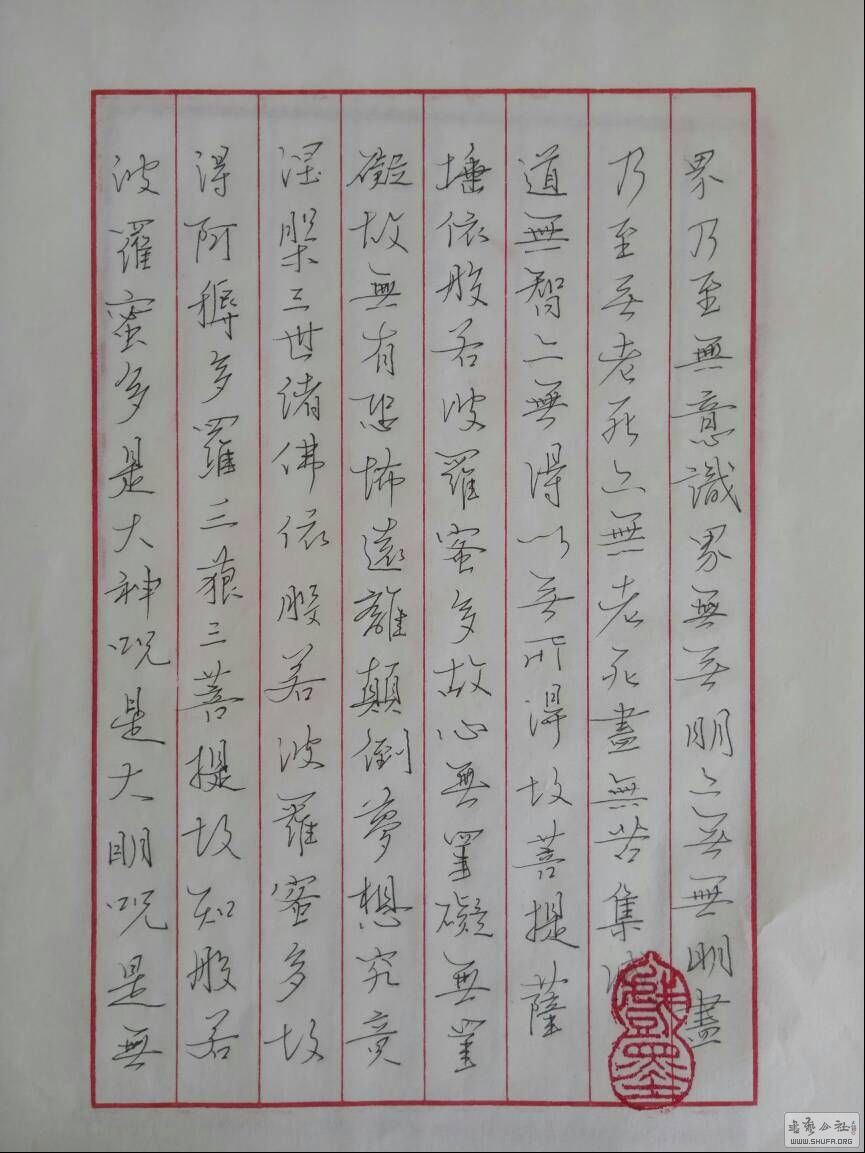 界乃至無意識界無无明亦无無明盡
乃至无老死亦無老死盡無苦集滅
道無智亦無得以无所得故菩提薩
埵依般若波羅蜜多故心無罣礙無罣
礙故無有恐怖遠離顛倒夢想究竟
涅槃三世諸佛依般若波羅蜜多故
得阿耨多羅三藐三菩提故知般若
波羅蜜多是大神咒是大明咒是無
WWW.SHUFA.ORG